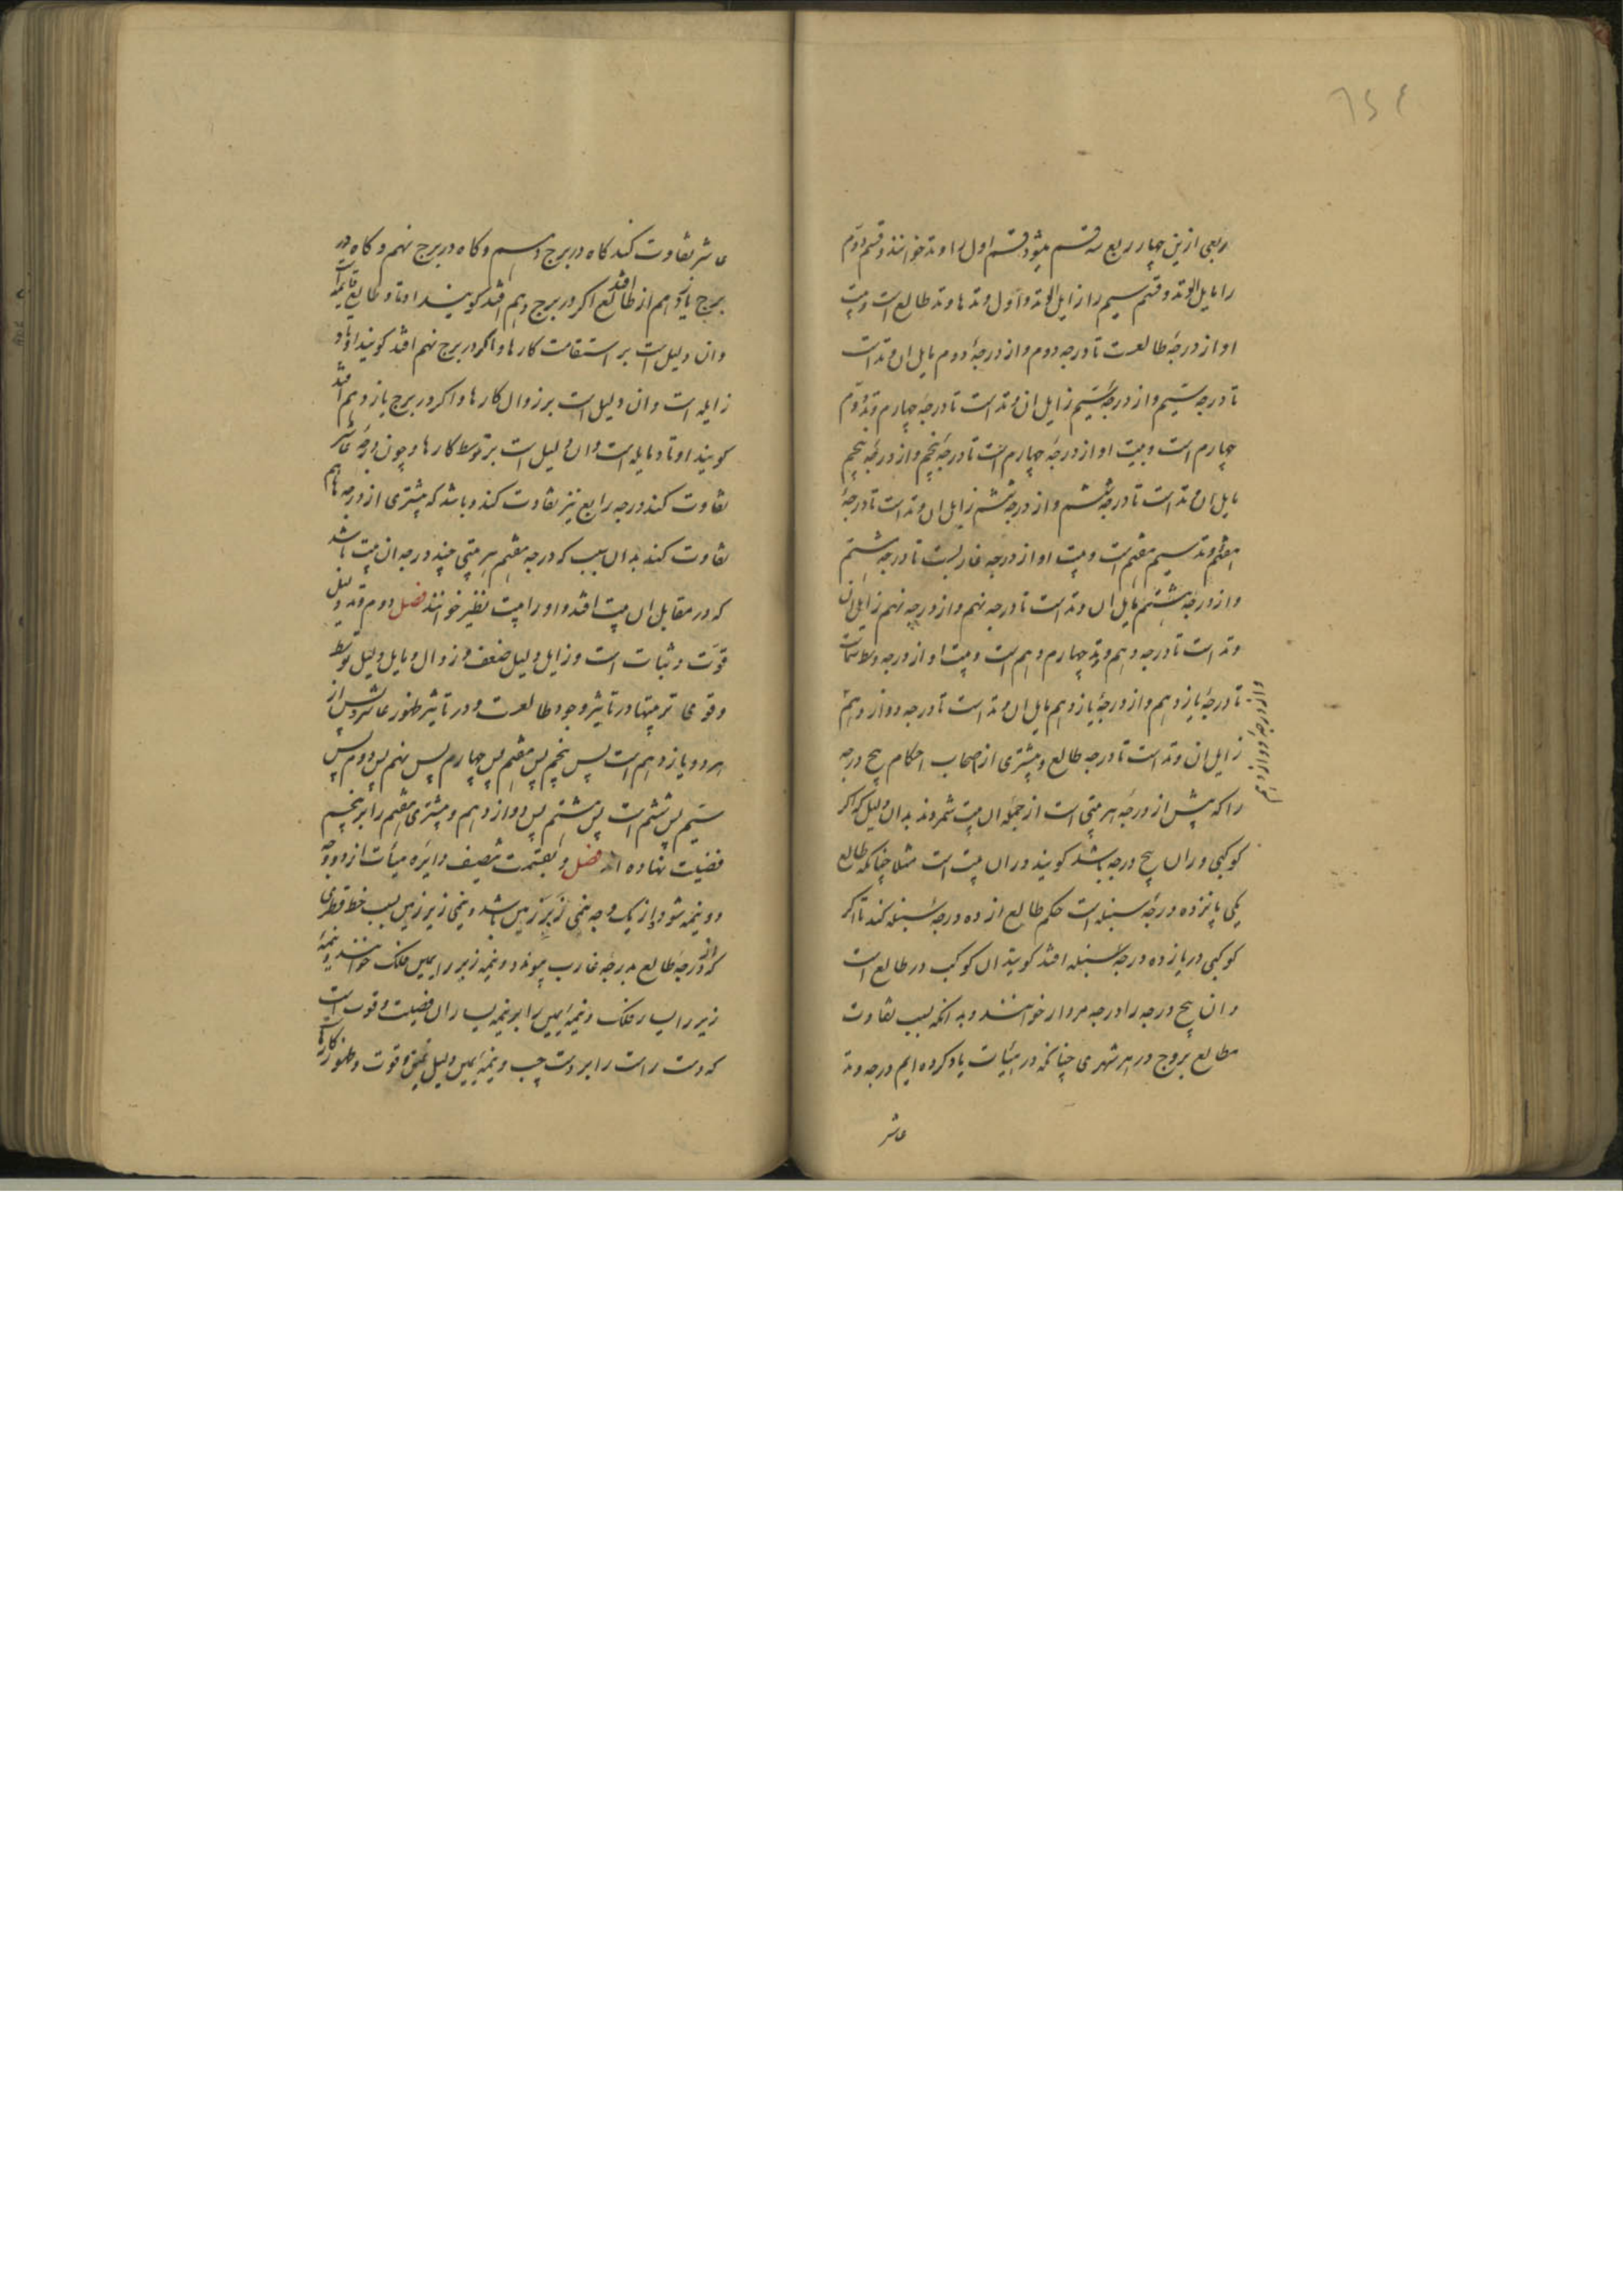 ربعی ازین چهار ربع سه قسم میشود قسم اول را وتد خوانند و قسم دوّم
را مایل الوتد و قسم سیم را زایل الوتد و اوّل وتدها وتد طالع است و بیت
او از درجهٔ طالعست تا درجه دوم و از درجهٔ دوم مایل ان وتد است
تا درجه سیّم و از درجهٔ سیّم زایل ان وتد است تا درجهٔ چهارم و وتد دوّم
چهارم است و بیت او از درجهٔ چهارم است تا درجهٔ پنجم و از درجهٔ پنجم
مایل ان وتد است تا درجهٔ ششم و از درجهٔ ششم زایل ان وتد است تا درجهٔ
هفتم وتد سیم هفتم است و بیت او از درجه غاربست تا درجه هشتم
و از درجهٔ هشتم مایل ان وتد است تا درجه نهم و از درجه نهم زایل ان
وتد است تا درجه دهم وتد چهارم دهم است و بیت او از درجه وسط سماست
تا درجهٔ یازدهم و از درجهٔ یازدهم مایل ان وتد است تا درجه دوازدهم
و از درجهٔ دوازدهم
زایل ان وتد است تا درجه طالع و بیشتری از اصحاب احکام پنج درجه
را که پیش از درجه هر بیتی است از جمله ان بیت شمردند بدان دلیل که اکر
کوکبی در ان پنج درجه باشد کویند در ان بیت است مثلا چنانکه طالع
یکی پانزده درجهٔ سنبله است حکم طالع از ده درجهٔ سنبله کند تا اکر
کوکبی در یازده درجهٔ سنبله افتد کویند ان کوکب در طالع است
و ان پنج درجه را درجه مردار خوانند و بدانکه بسبب تفاوت
مطالع بروج در هر شهری چنانکه در هیئات یاد کرده ایم درجه وتد
عاشر
عاشر تفاوت کند کاه در برج دهم و کاه در برج نهم و کاه در
برج یازدهم از طالع افتد اکر در برج دهم افتد کویند اوتاد طالع قایمه است
و ان دلیل است بر استقامت کارها و اکر در برج نهم افتد کویند اوتاد
زایله است و ان دلیل است بر زوال کارها و اکر در برج یازدهم افتد
کویند اوتاد مایله است و ان دلیل است بر توسط کارها و چون درجهٔ عاشر
تفاوت کند درجه رابع نیز تفاوت کند و باشد که بیشتری از درجه ها هم
تفاوت کند بدان سبب که درجه هفتم هر بیتی چند درجه ان بیت باشد
که در مقابل ان بیت افتد و او را بیت نظیر خوانند فصل دوم وتد دلیل
قوّت و ثبات است و زایل دلیل ضعف و زوال و مایل دلیل توسط
و قوی ترینها در تاثیر وجود طالعست و در تاثیر ظهور عاشر و پس از
هر دو یازدهم است پس پنجم پس هفتم پس چهارم پس نهم پس دوم پس
سیّم پس ششم است پس هشتم پس دوازدهم و بیشتری هفتم را بر پنجم
فضیلت نهاده اند فصل و بقسمت تنصیف دایره هیئات از دو وجه
دو نیمه شود از یک وجه نیمی زبر زمین باشد و نیمی زیر زمین بسبب خط قطری
که از درجهٔ طالع بدرجهٔ غارب پیوندد و نیمه زبر را یمین فلک خوانند و نیمهٔ
زیر را یسار فلک و نیمهٔ یمین را بر نیمه یسار ان فضیلت و قوت است
که دست راست را بر دست چپ و نیمهٔ یمین دلیل قوت و ظهور کارها